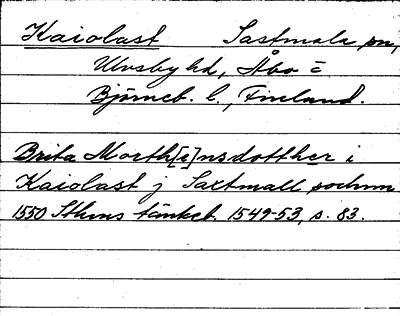 Kaiolast Sastmala sn,
Ulvsby hd, Åbo =
Björneb. l., Finland.
Brita Morth[e]nsdotther i
Kaiolast j Saxtmall sochnn
1550 Sthms tänkeb. 1549-53, s. 83.